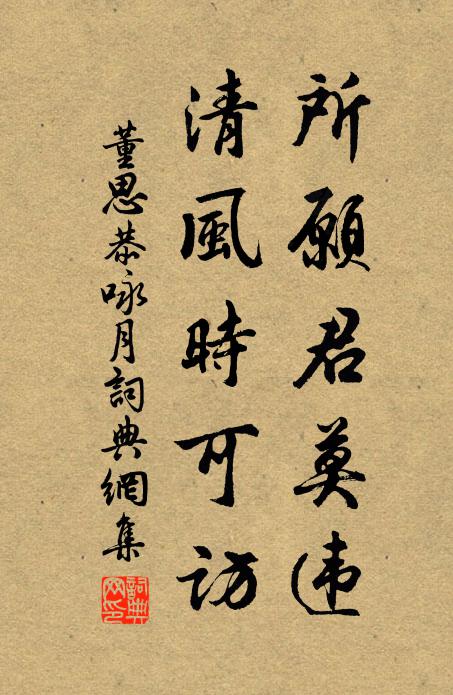 所願君莫违
清風時可訪
董思恭咏月詞典網集
詞典
网印